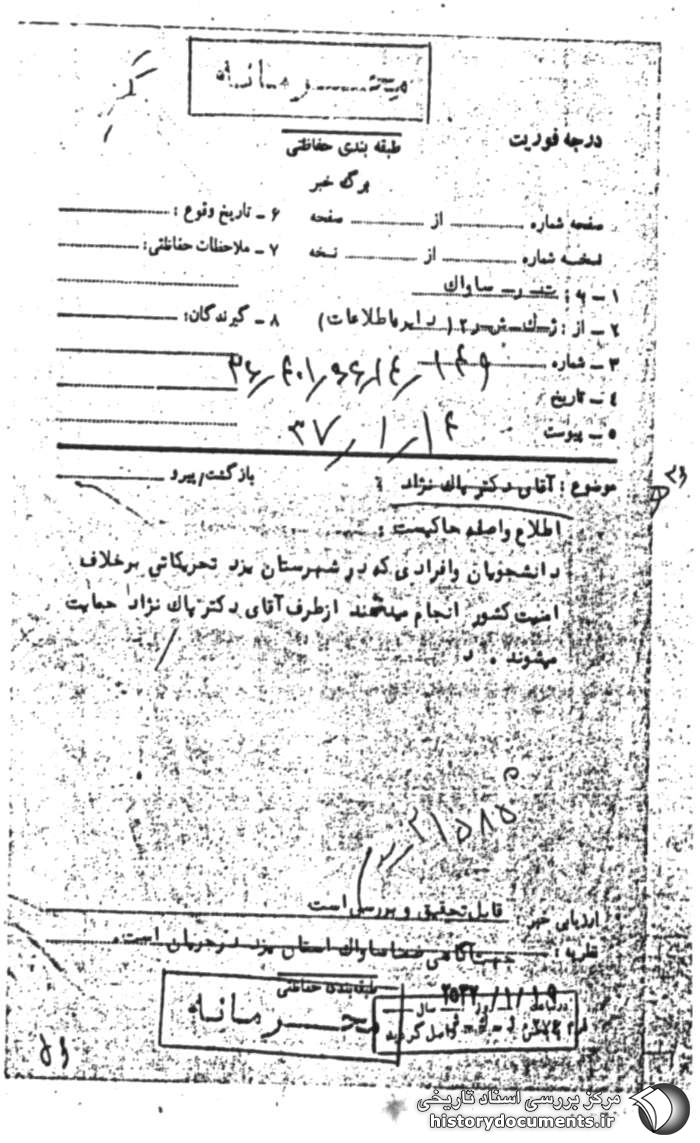 محرمانه
طبقه بندی حفاظتی
درجه فوریت
برگ خبر
صفحه شماره ........ از ........ صفحه
نسخه شماره ........ از ........ نسخه
۱ - به : ت ر ساواک
۲ - از : ژ ك ش ر۲ ( دایره اطلاعات )
۳ - شماره
۴ - تاریخ
۵ - پیوست
۶ - تاریخ وقوع :
۷ - ملاحظات حفاظتی:
۸ - گیرندگان:
۳۷/۱/۱۴
موضوع : آقای دکتر پاک نژاد
بازگشت/پیرو
اطلاع واصله حاکیست :
دانشجویان و افرادی که در شهرستان یزد تحریکاتی برخلاف
امنیت کشور انجام میدهند از طرف آقای دکتر پاک نژاد حمایت
میشوند . د
۲۱۵۸۵
ارزیابی خبر قابل تحقیق و بررسی است
نظریه : جهت آگاهی ضمنا ساواک استان یزد در جریان است .
طبقه بندی حفاظتی
محرمانه
۲۵۳۷/۱/۱۹
مرکز بررسی اسناد تاریخی
historydocuments.ir